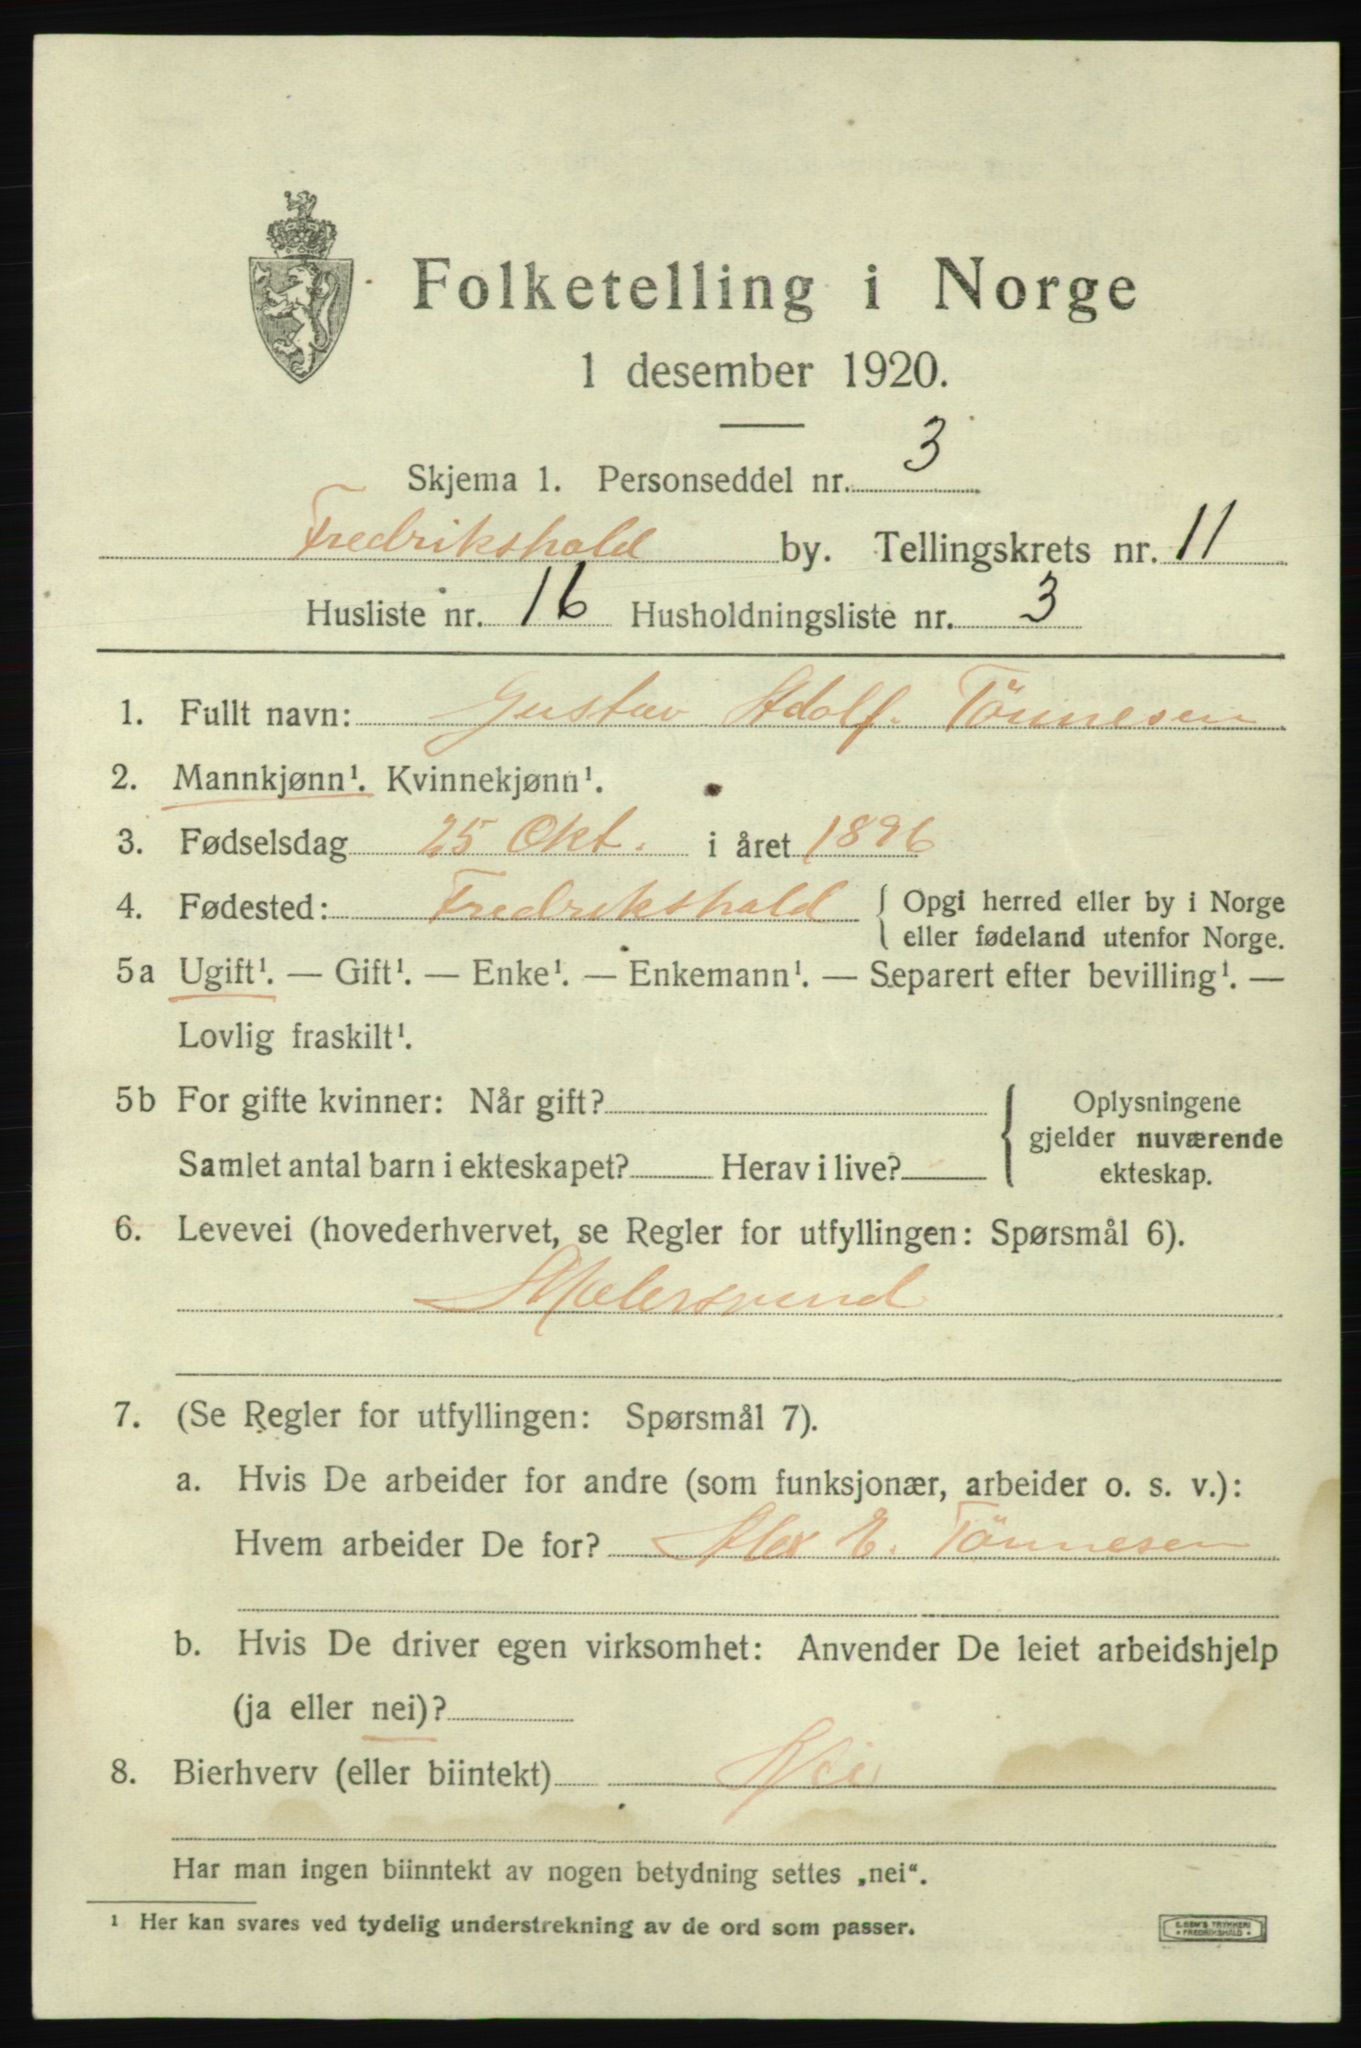 Folketelling i Norge
1 desember 1920.
Skjema 1. Personseddel nr. 3
Fredrikshald by. Tellingskrets nr. 11
Husliste nr. 16 Husholdningsliste nr. 3
1. Fullt navn: Gustav Adolf. Tönnesen
2. Mannkjønn¹. Kvinnekjønn¹.
3. Fødselsdag 25 Okt. i året 1896
4. Fødested: Fredrikshald { Opgi herred eller by i Norge
eller fødeland utenfor Norge.
5a Ugift¹. — Gift¹. — Enke¹. — Enkemann¹. — Separert efter bevilling¹. —
Lovlig fraskilt¹.
5b For gifte kvinner: Når gift?
Samlet antal barn i ekteskapet? Herav i live?
Oplysningene
gjelder nuværende
ekteskap.
6. Levevei (hovederhvervet, se Regler for utfyllingen: Spørsmål 6).
Malersvend
7. (Se Regler for utfyllingen: Spørsmål 7).
a. Hvis De arbeider for andre (som funksjonær, arbeider o. s. v.):
Hvem arbeider De for? Alex E. Tönnesen
b. Hvis De driver egen virksomhet: Anvender De leiet arbeidshjelp
(ja eller nei)?
8. Bierhverv (eller biintekt) Nei
Har man ingen biinntekt av nogen betydning settes „nei“.
¹ Her kan svares ved tydelig understrekning av de ord som passer.
TRYKKERI
FREDRIKSHALD